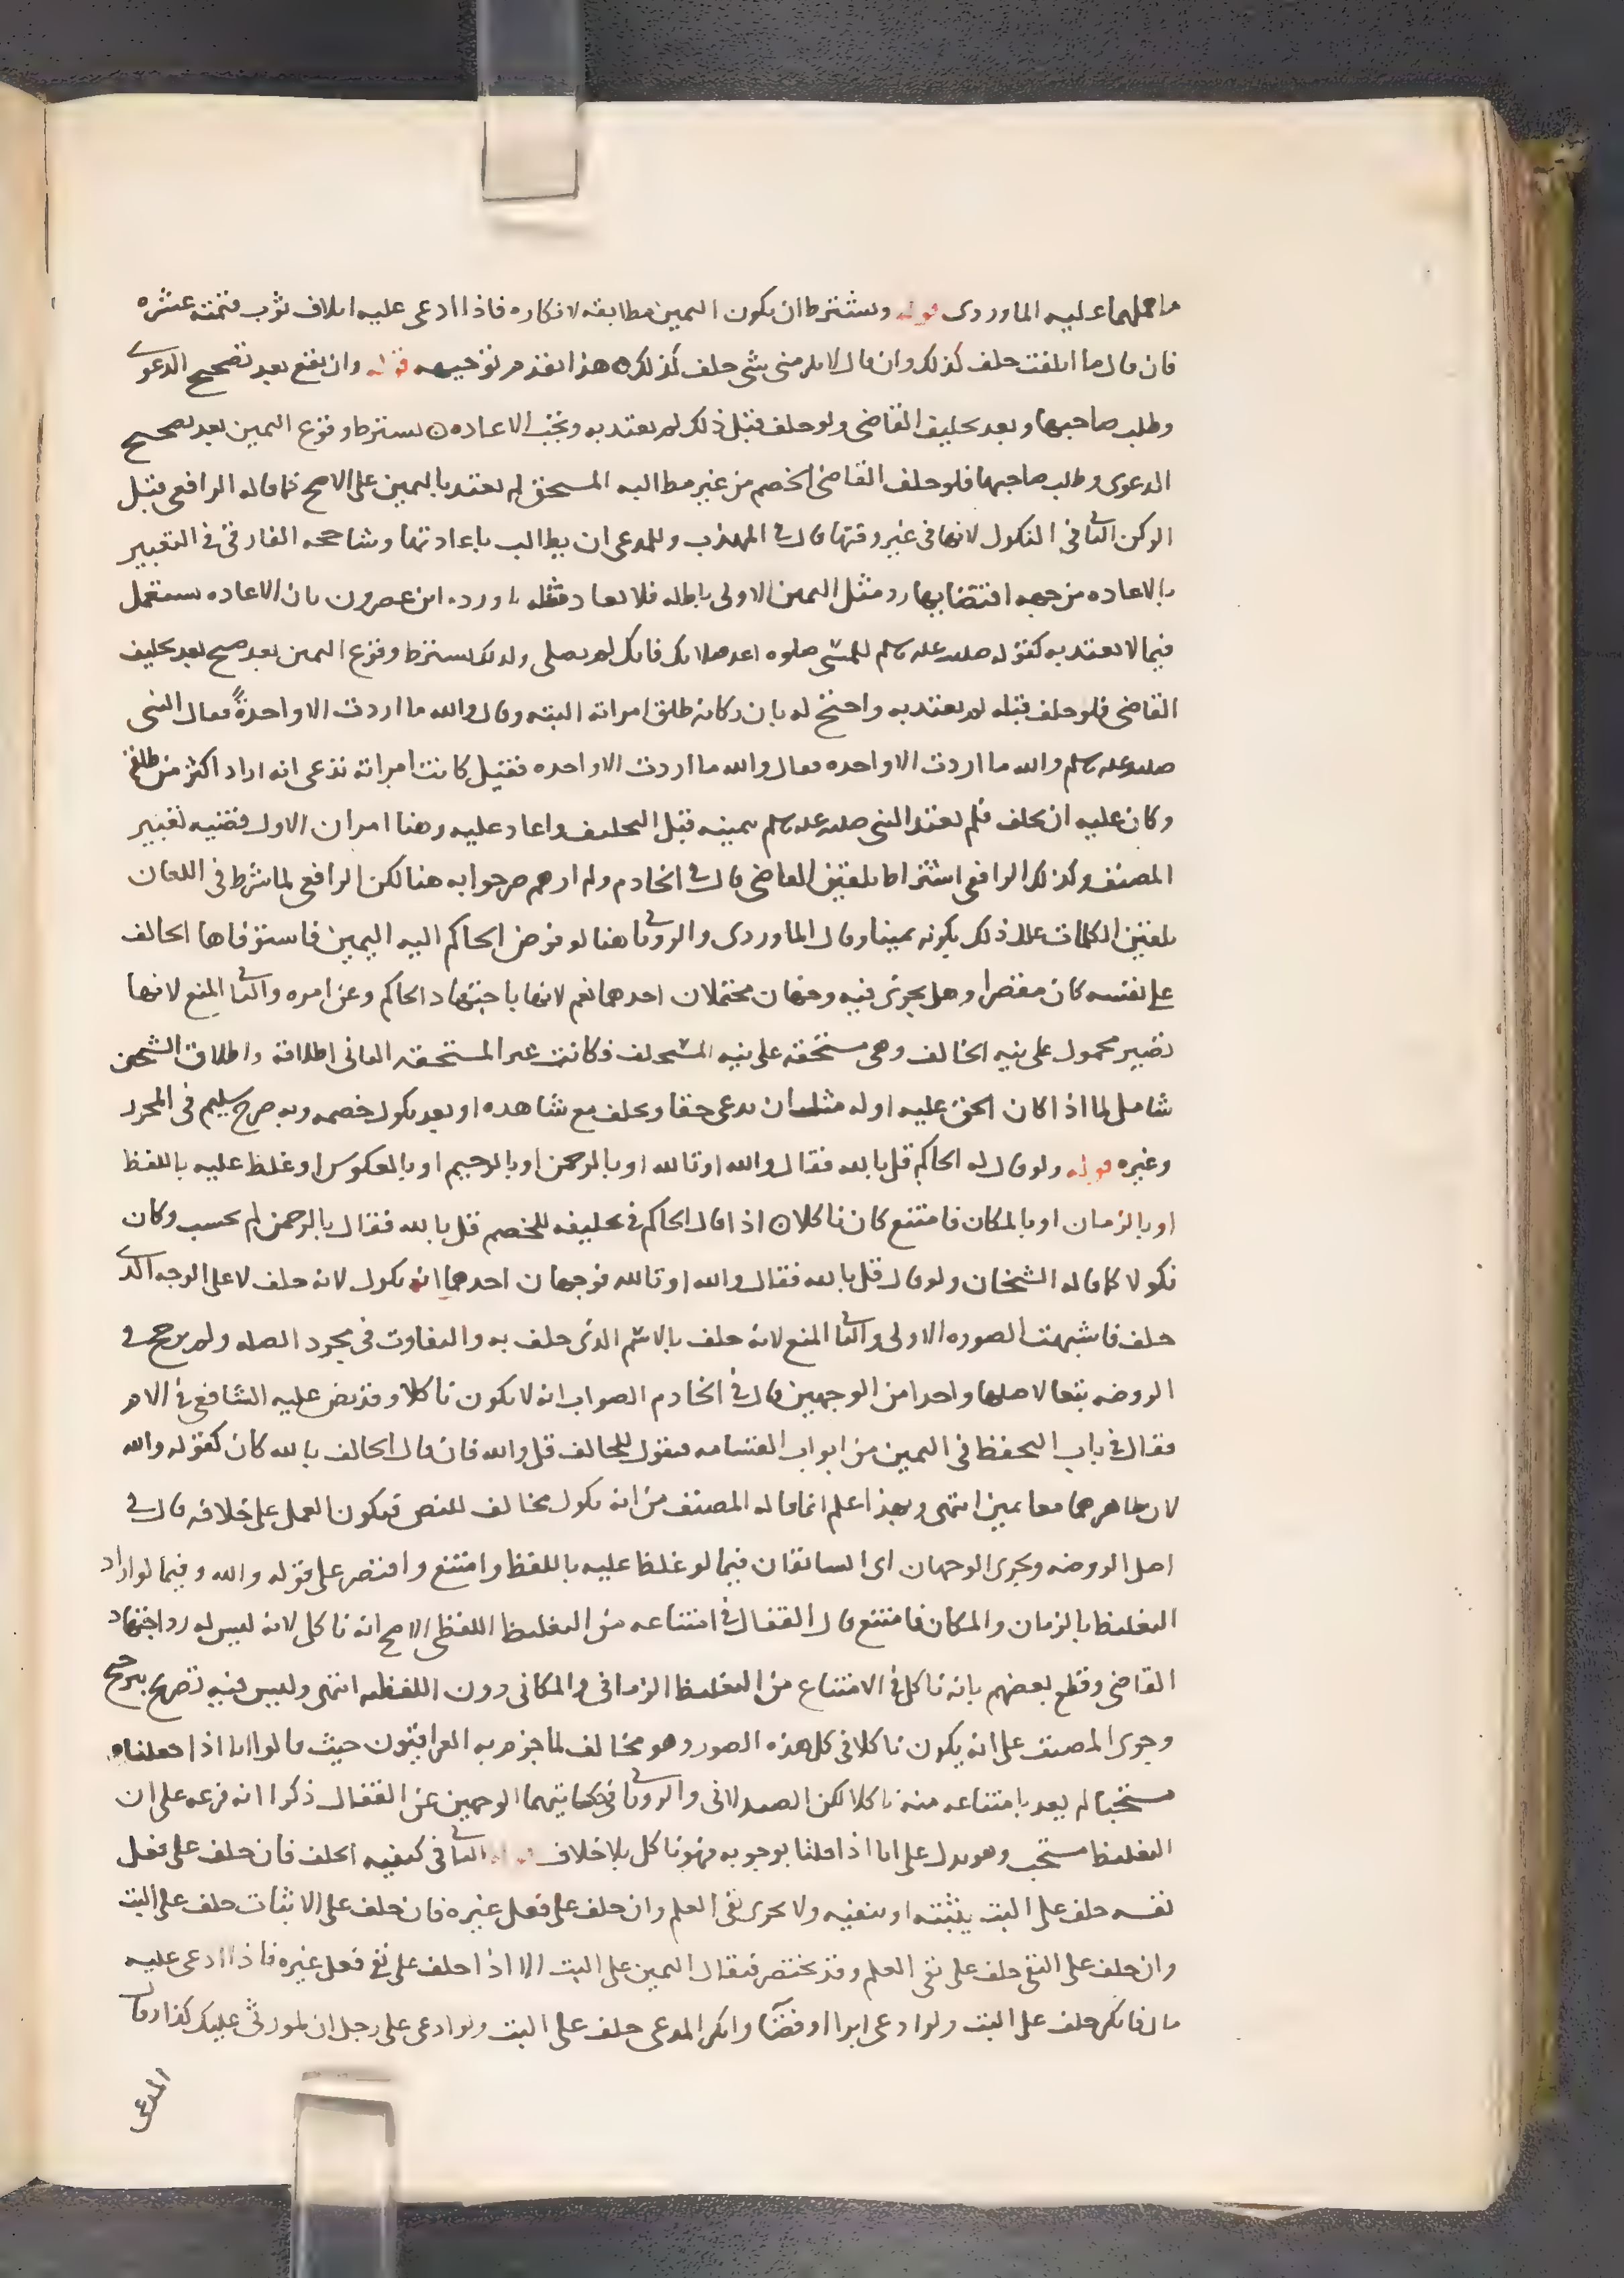 ما حملهما عليه الماوردى قوله ويشترط ان يكون اليمين مطابقة لانكاره فاذا ادعى عليه اتلاف ثوب قيمته عشره
فان قال ما اتلفت حلف كذلك وان قال لا يلزمنى شى حلف كذلك ٥ هذا تقدم توجيهه قوله وان يقع بعد تصحيح الدعوى
وطلب صاحبها وبعد تحليف القاضى ولو حلف قبل ذلك لم يعتد به ويجب الاعاده ٥ يشترط وقوع اليمين بعد تصحيح
الدعوى وطلب صاحبها فلو حلف القاضى الخصم من غير مطالبه المستحق لم يعتد باليمين على الاصح كما قاله الرافعى قبل
الركن الثانى فى النكول لانها فى غير وقتها قال فى المهذب وللمدعى ان يطالب باعادتها وشاححه الفارقى فى التعبير
بالاعاده من جهه اقتضايها رد مثل اليمين الاولى باطله فلا تعاد مثله ورده ابن عصرون بان الاعاده تستعمل
فيما لا يعتد به كقوله صلى الله عليه وسلم للمسى صلوه اعد صلاتك فانك لم تصلى ولذلك يشترط وقوع اليمين بعد صح بعد تحليف
القاضى فلو حلف قبله لم يعتد به واحتج له بان ركانه طلق امراته البته وقال والله ما اردت الا واحدةً فقال النبى
صلى الله عليه وسلم والله ما اردت الا واحده فقال والله ما اردت الا واحده فقيل كانت امراته تدعى انه اراد اكثر من طلقة
وكان عليه ان يحلف فلم يعتد النبى صلى الله عليه وسلم بيمينه قبل التحليف واعاد عليه وهنا امران الاول قضيه تعبير
المصنف وكذلك الرافعى اشتراط تلقين القاضى قال فى الخادم ولم ارهم صرحوا به هنا لكن الرافعى لما شرط فى اللعان
تلقين الكلمات علل ذلك بكونه يمينا وقال الماوردى والرويانى هنا لو فوض الحاكم اليه اليمين فاستوفاها الحالف
على نفسه كان مقصرا وهل يجزى فيه وجهان محتملان احدهما نعم لانها باجتهاد الحاكم وعن امره والثانى المنع لانها
تصير محمول على نيه الحالف وهى مستحقه على نيه المستحلف فكانت غير المستحقه الثانى اطلاقه واطلاق الشيخين
شامل لما اذا كان الحق عليه او له مثل ان يدعى حقا ويحلف مع شاهده او بعد نكول خصمه وبه صرح سليم فى المجرد
وغيره قوله ولو قال له الحاكم قل بالله فقال والله او تالله او بالرحمن او بالرحيم او بالعكوس او غلظ عليه باللفظ
او بالزمان او بالمكان فامتنع كان ناكلا ٥ اذا قال الحاكم فى تحليفه للخصم قل بالله فقال بالرحمن لم يحسب وكان
نكولا كما قاله الشيخان ولو قال قل بالله فقال والله او تالله فوجهان احدهما انه نكول لانه حلف لا على الوجه الذى
حلف فاشبهت الصوره الاولى والثانى المنع لانه حلف بالاسم الذى حلف به والتفاوت فى مجرد الصله ولم يرجح فى
الروضه تبعا لاصلها واحدا من الوجهين قال فى الخادم الصواب انه لا يكون ناكلا وقد نص عليه الشافعى فى الام
فقال فى باب التحفظ فى اليمين من ابواب القسامه فيقول للحالف قل والله فان قال الحالف بالله كان كقوله والله
لان ظاهرهما معا يمين انتهى وبهذا علم ان ما قاله المصنف من انه نكول مخالف للنص فيكون العمل على خلافه قال فى
اصل الروضه ويجرى الوجهان اى السابقان فيما لو غلظ عليه باللفظ وامتنع واقتصر على قوله والله وفيما لو اراد
التغليظ بالزمان والمكان فامتنع قال القفال فى امتناعه من التغليظ اللفظى الاصح انه ناكل لانه ليس له رد اجتهاد
القاضى وقطع بعضهم بانه ناكل فى الامتناع من التغليظ الزمانى والمكانى دون اللفظيه انتهى وليس فيه تصريح بترجيح
وجرى المصنف على انه يكون ناكلا فى كل هذه الصور وهو مخالف لما جزم به العراقيون حيث قالوا انا اذا جعلناه
مستحبا لم يعد بامتناعه منه ناكلا لكن الصيدلانى والرويانى فى حكايتهما الوجهين عن القفال ذكرا انه فرعه على ان
التغليظ مستحب وهو يدل على انا اذا قلنا بوجوبه فهو ناكل بلا خلاف قوله الثانى فى كيفيه الحلف فان حلف على فعل
نفسه حلف على البت يثبته او ينفيه ولا يجزى نفى العلم وان حلف على فعل غيره فان حلف على الاثبات حلف على البت
وان حلف على النفى حلف على نفى العلم وقد يختصر فيقال اليمين على البت الا اذا حلف على نفى فعل غيره فاذا ادعى عليه
مال فانكر حلف على البت ولو ادعى ابرا او قضًا وانكر المدعى حلف على البت ولو ادعى على رجل ان لمورثى عليك كذا وقال
المدعى